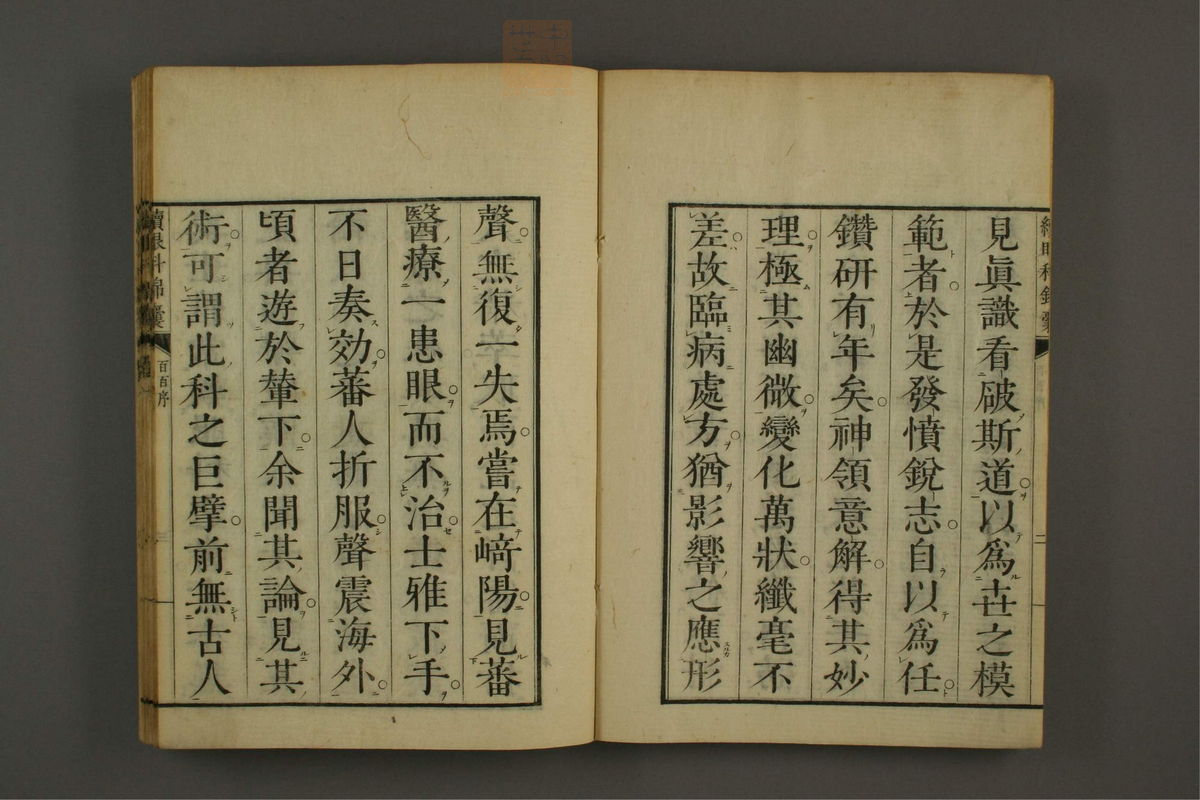 見眞識看破斯道以爲世之模
範者於是發憤銳志自以爲任
鑽研有年矣神領意解得其妙
理極其幽微變化萬狀纖毫不
差故臨病處方猶影響之應形
聲無復一失焉嘗在﨑陽見蕃
醫療一患眼而不治士雅下手
不日奏効蕃人折服聲震海外
頃者遊於輦下余聞其論見其
術可謂此科之巨擘前無古人
續眼科錦囊